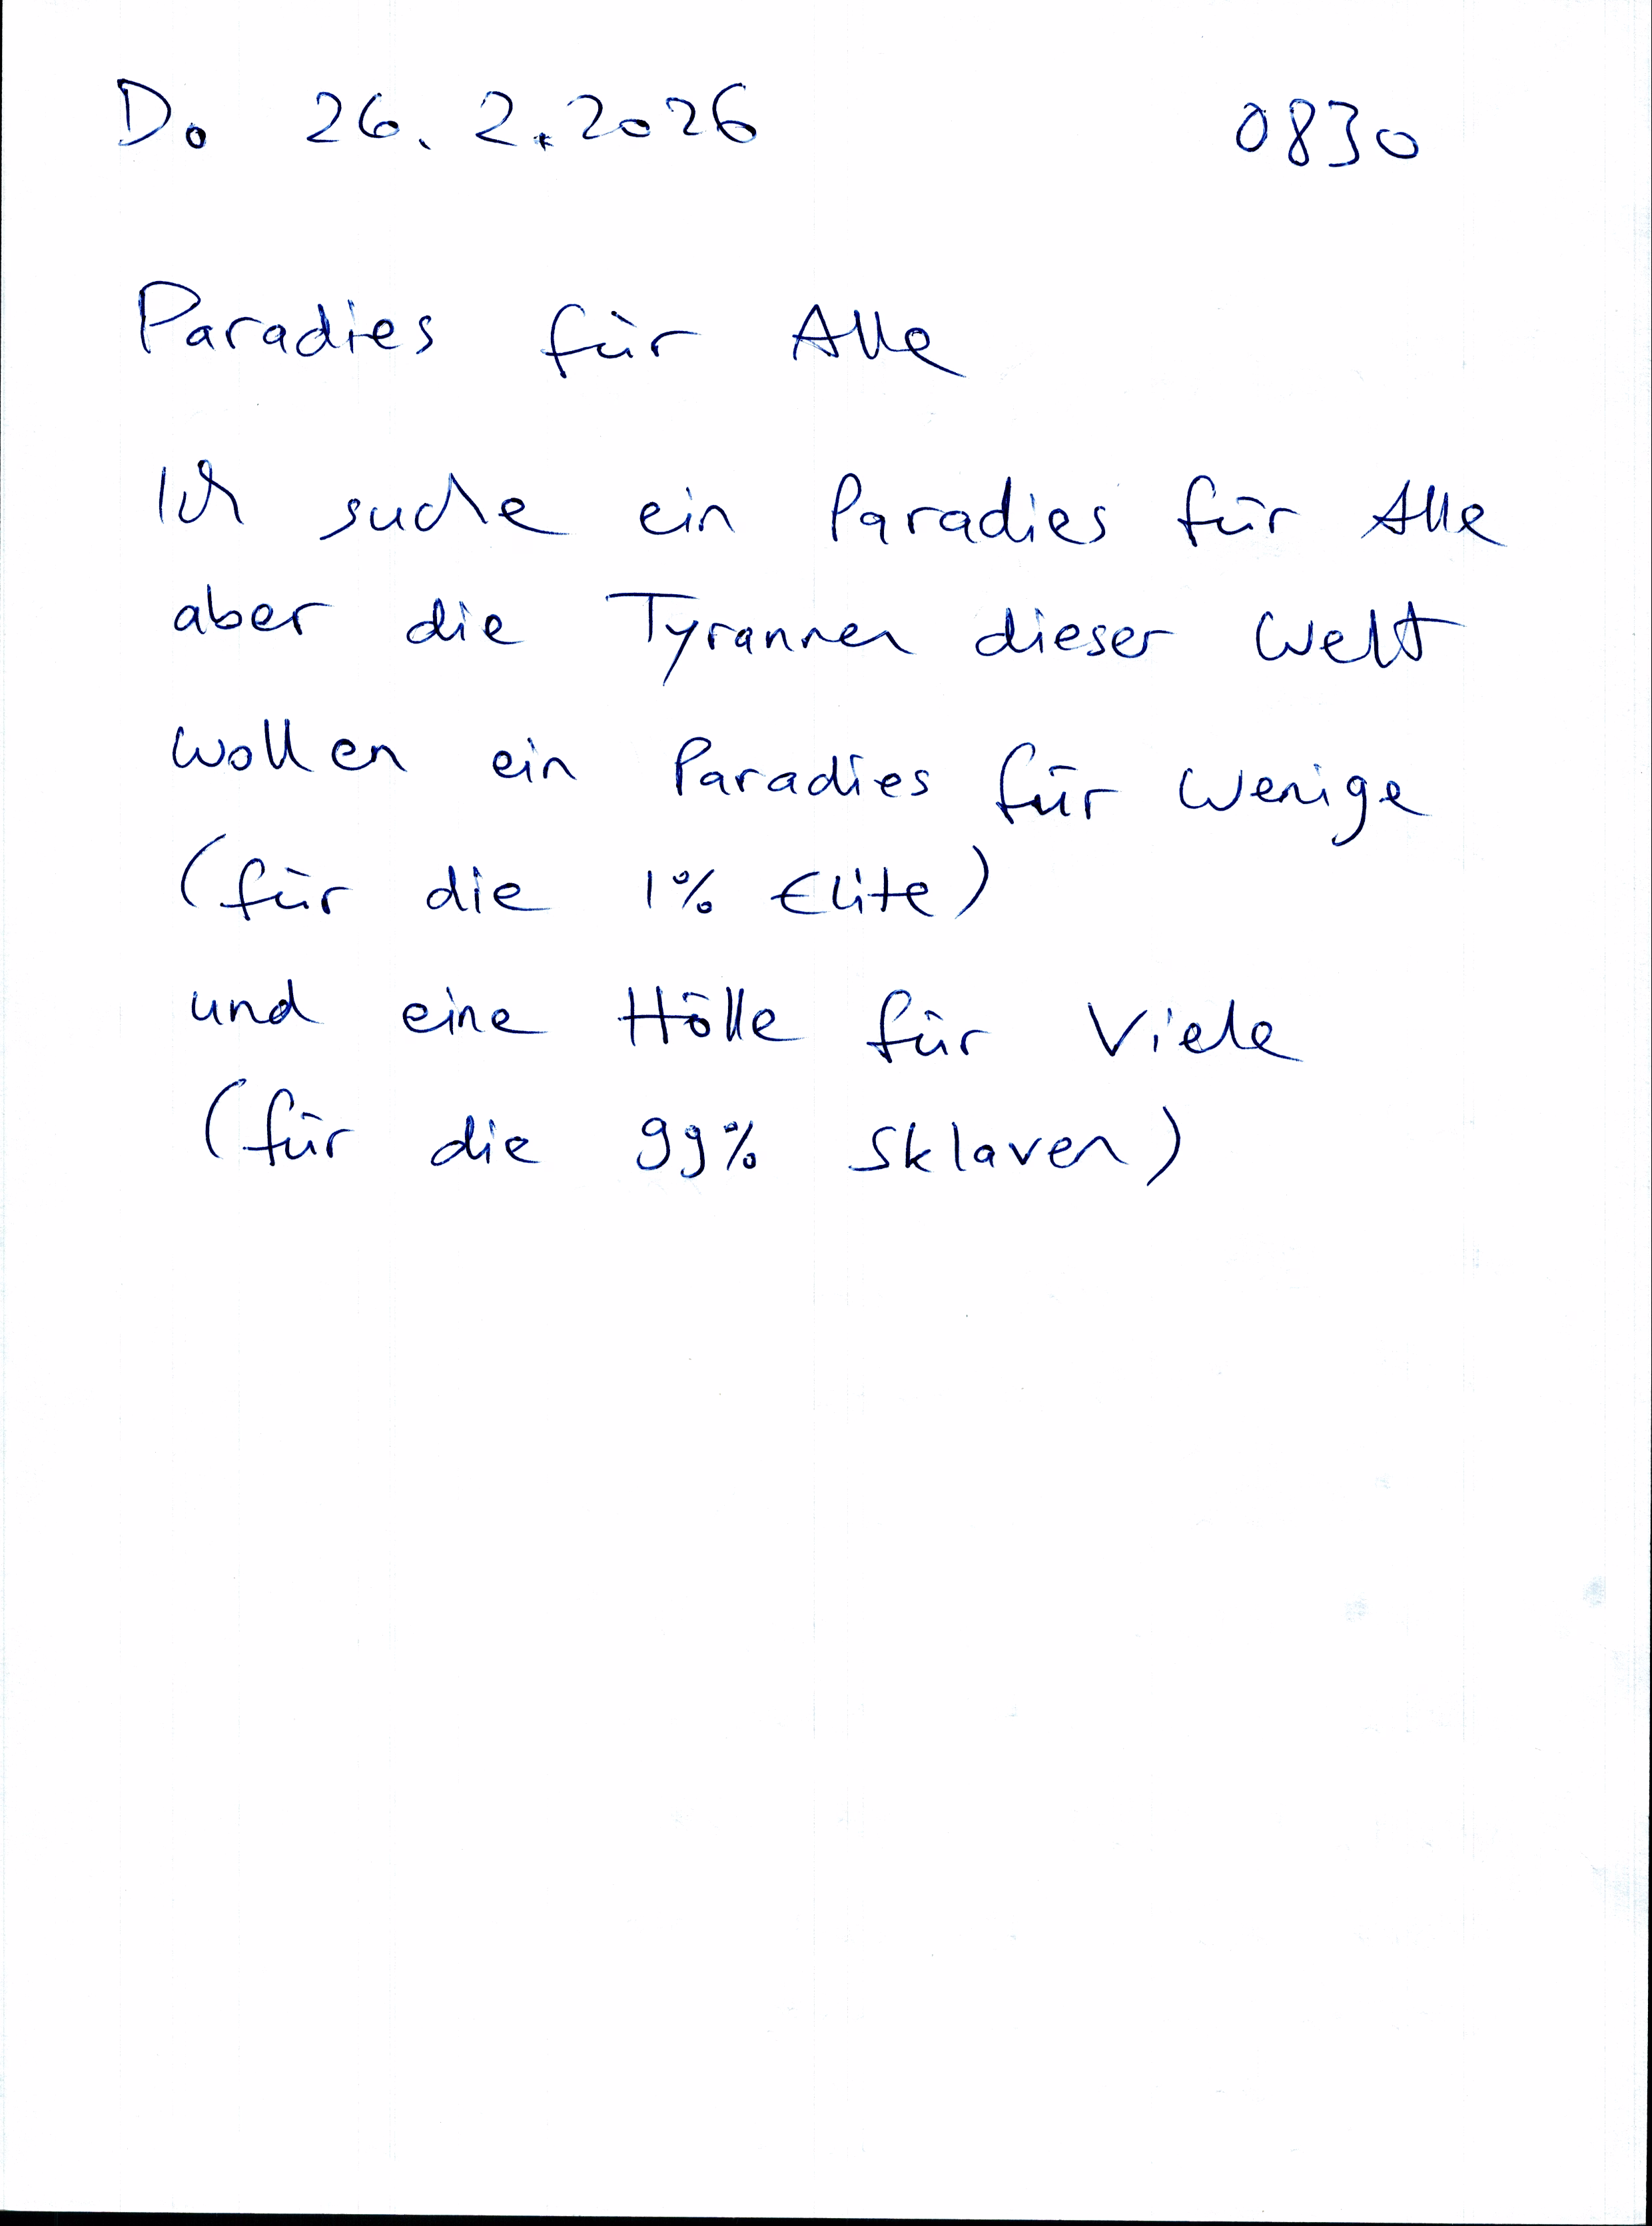 Do 26.2.2026 0830
Paradies für Alle
Ich suche ein Paradies für Alle
aber die Tyrannen dieser Welt
wollen ein Paradies für Wenige
(für die 1% Elite)
und eine Hölle für Viele
(für die 99% Sklaven)